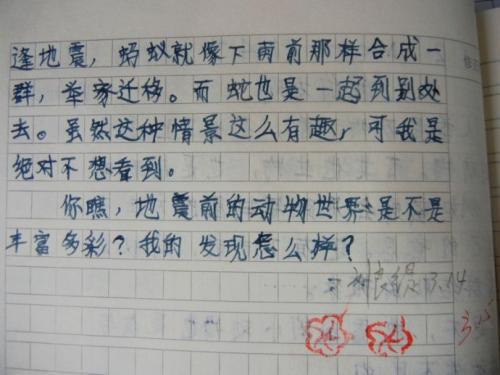 逢地震，蚂蚁就像下雨前那样合成一
群，举家迁移。而蛇也是一起到别处
去。虽然这种情景这么有趣，可我是
绝对不想看到。
你瞧，地震前的动物世界是不是
丰富多彩？我的发现怎么样？
3.15